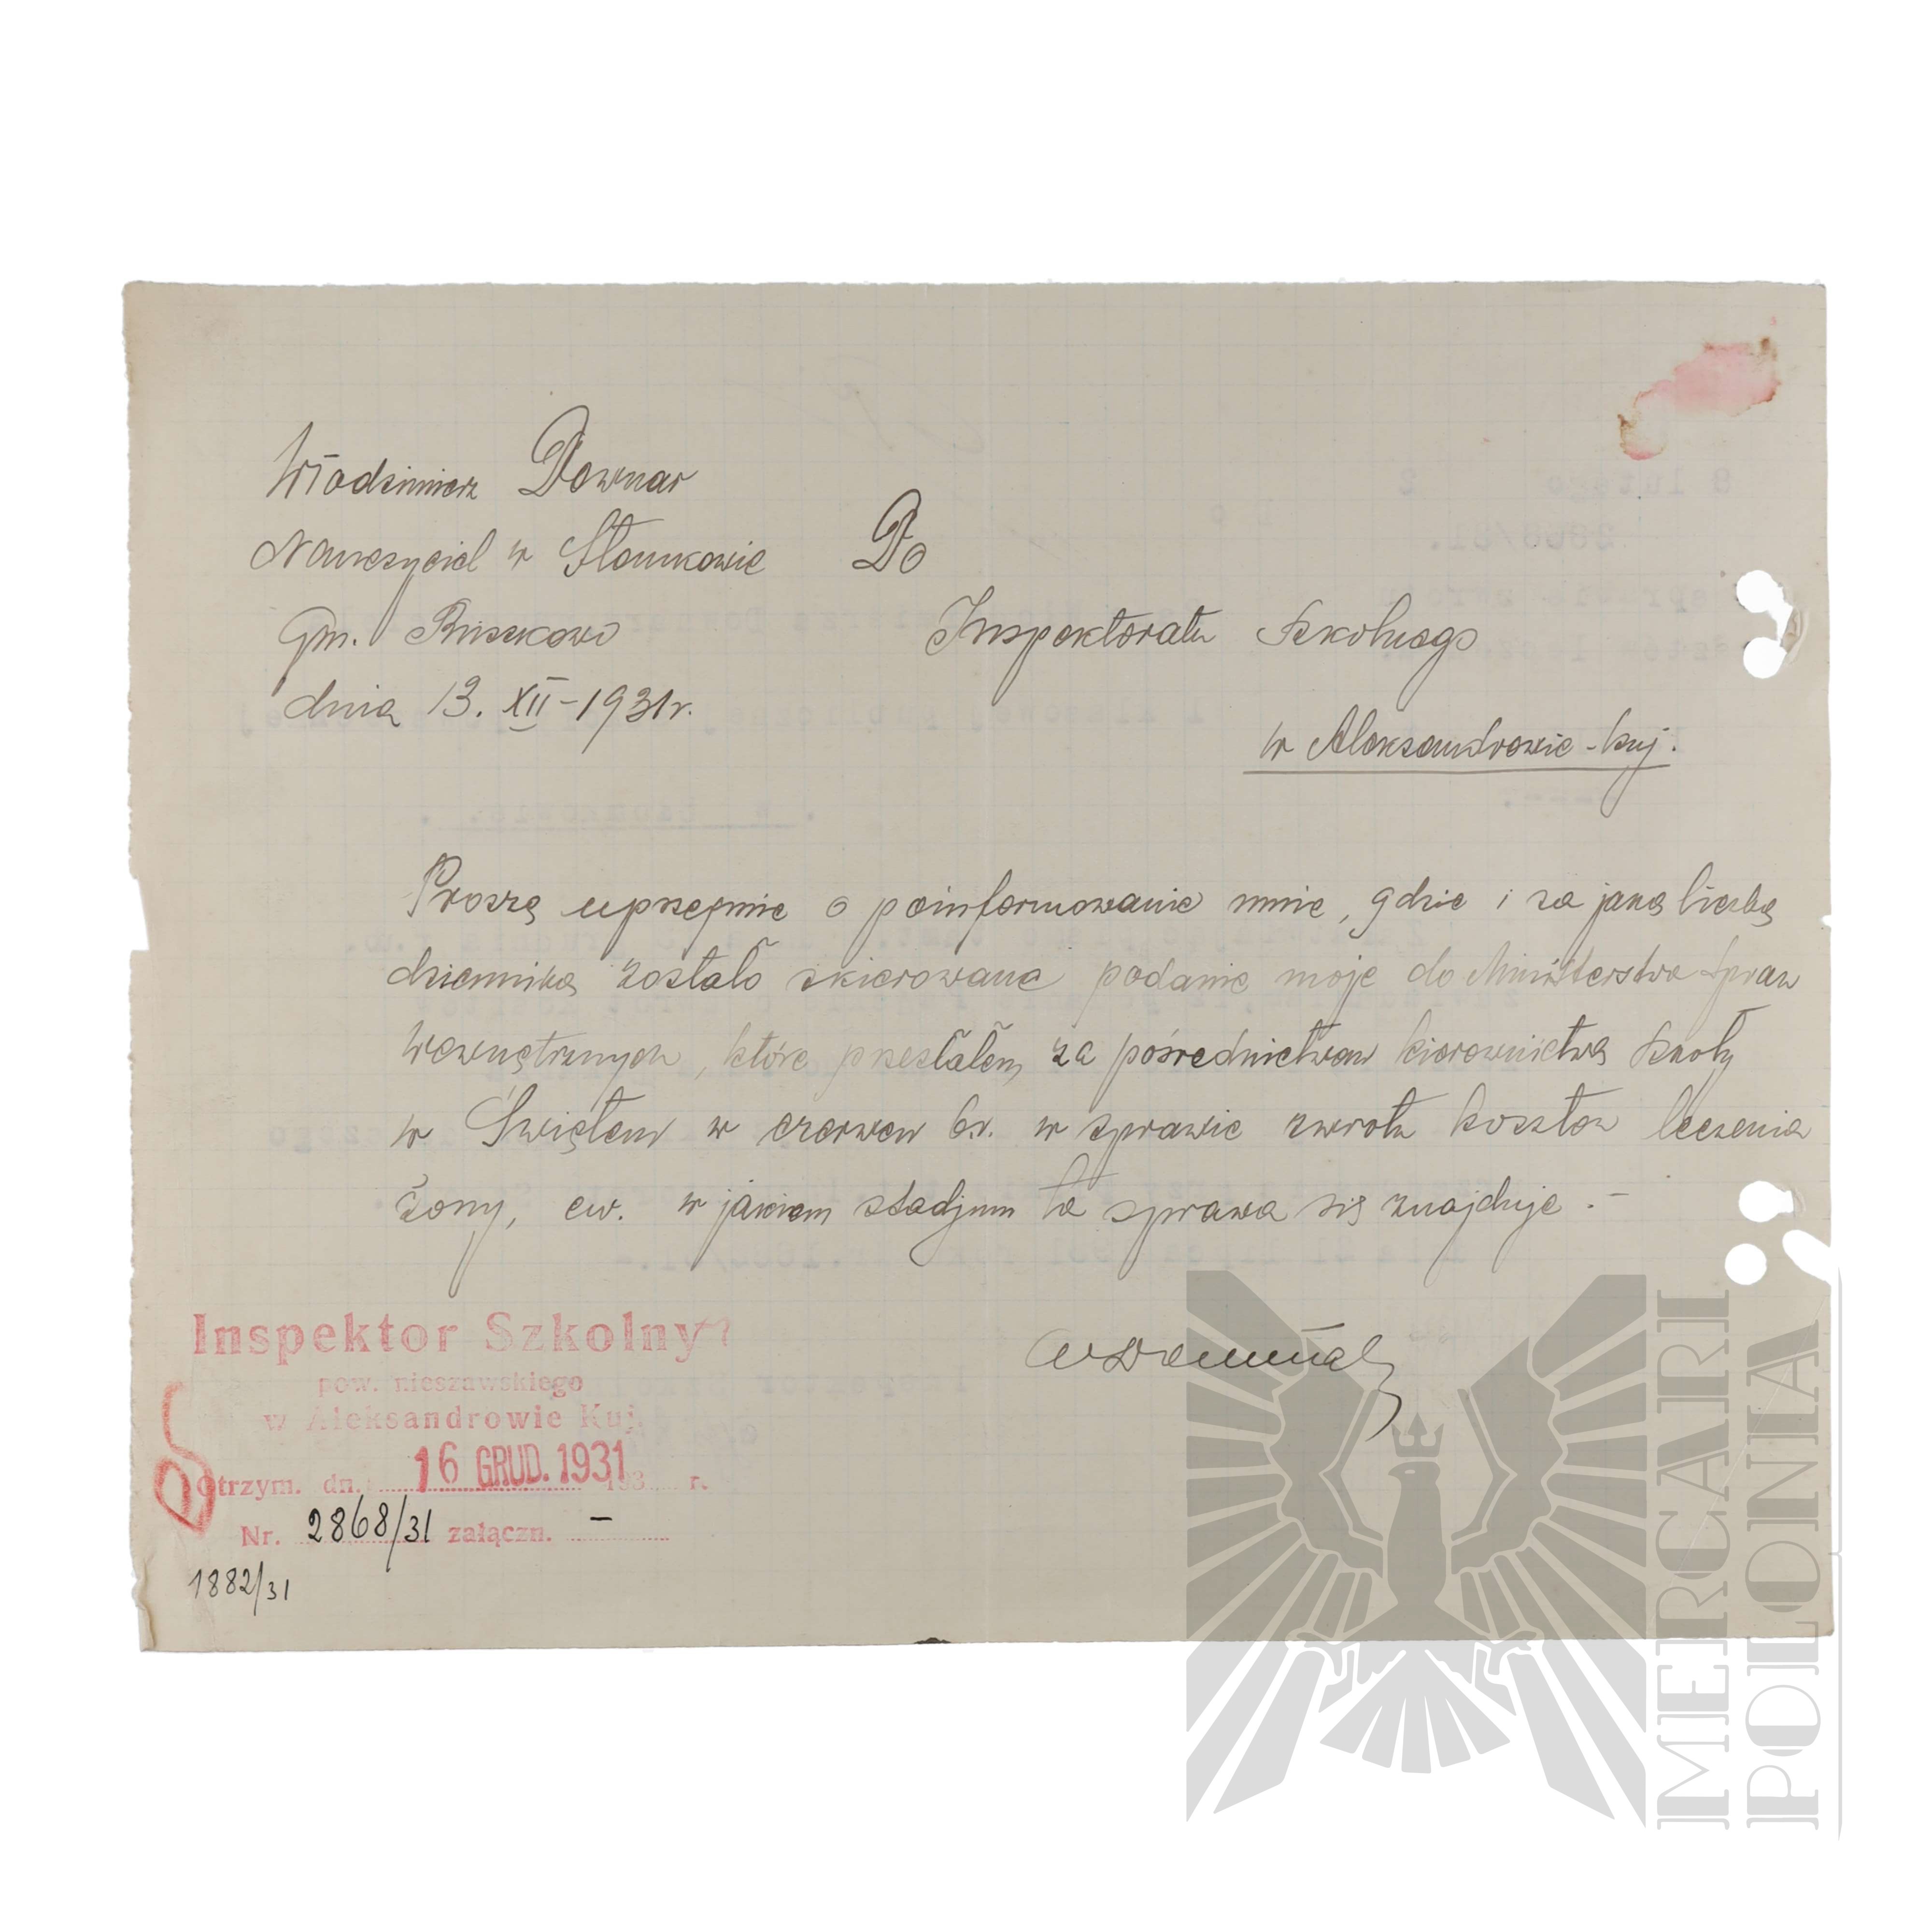 Włodzimierz Downar
Nauczyciel w Słomkowie
Gm. Ruszkowo
dnia 13. XII - 1931 r.
Do
Inspektoratu Szkolnego
w Aleksandrowie - Kuj.
Proszę uprzejmie o poinformowanie mnie, gdzie i za jaką liczbą
dziennika zostało skierowane podanie moje do Ministerstwa Spraw
Wewnętrznych, które przesłałem za pośrednictwem kierownictwa szkoły
w Świętem w czerwcu b.r. w sprawie zwrotu kosztów leczenia
żony, ew. w jakiem stadjum ta sprawa się znajduje. -
Inspektor Szkolny
pow. nieszawskiego
w Aleksandrowie Kuj.
Otrzym. dn. 16 GRUD. 1931 193 r.
Nr. 2868/31 załączn. -
1882/31
MERCARI
POLONIA